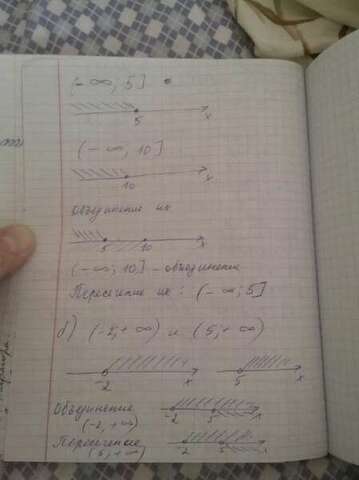 (-∞; 5]
5 x
(-∞, 10]
10 x
Объединение их
5 10 x
(-∞; 10] - объединение
Пересечение их : (-∞; 5]
б) (-2; +∞) и (5; +∞)
-2 x 5 x
Объединение -2 5 x
(-2, +∞)
Пересечение -2 5 x
(5; +∞)